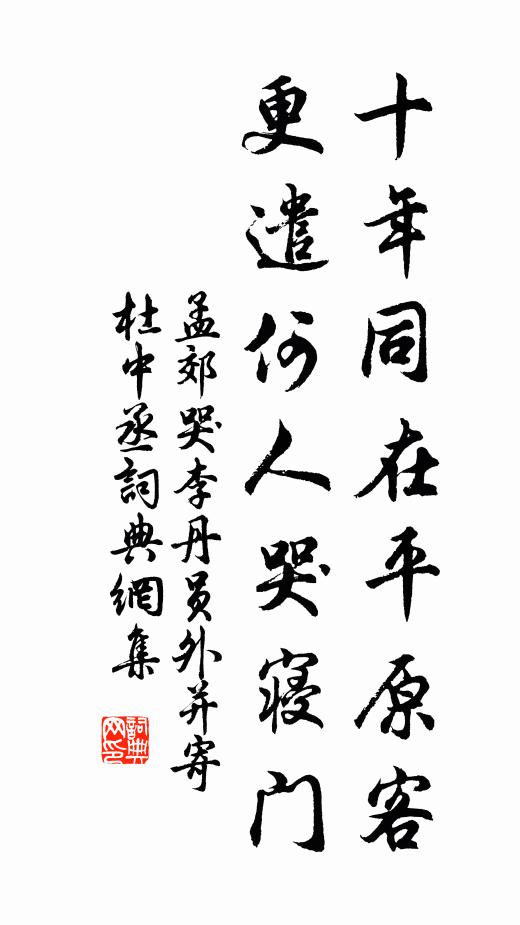 十年同在平原客
更遣何人哭寝門
孟郊哭李丹员外并寄
杜中丞詞典網集
詞典网印